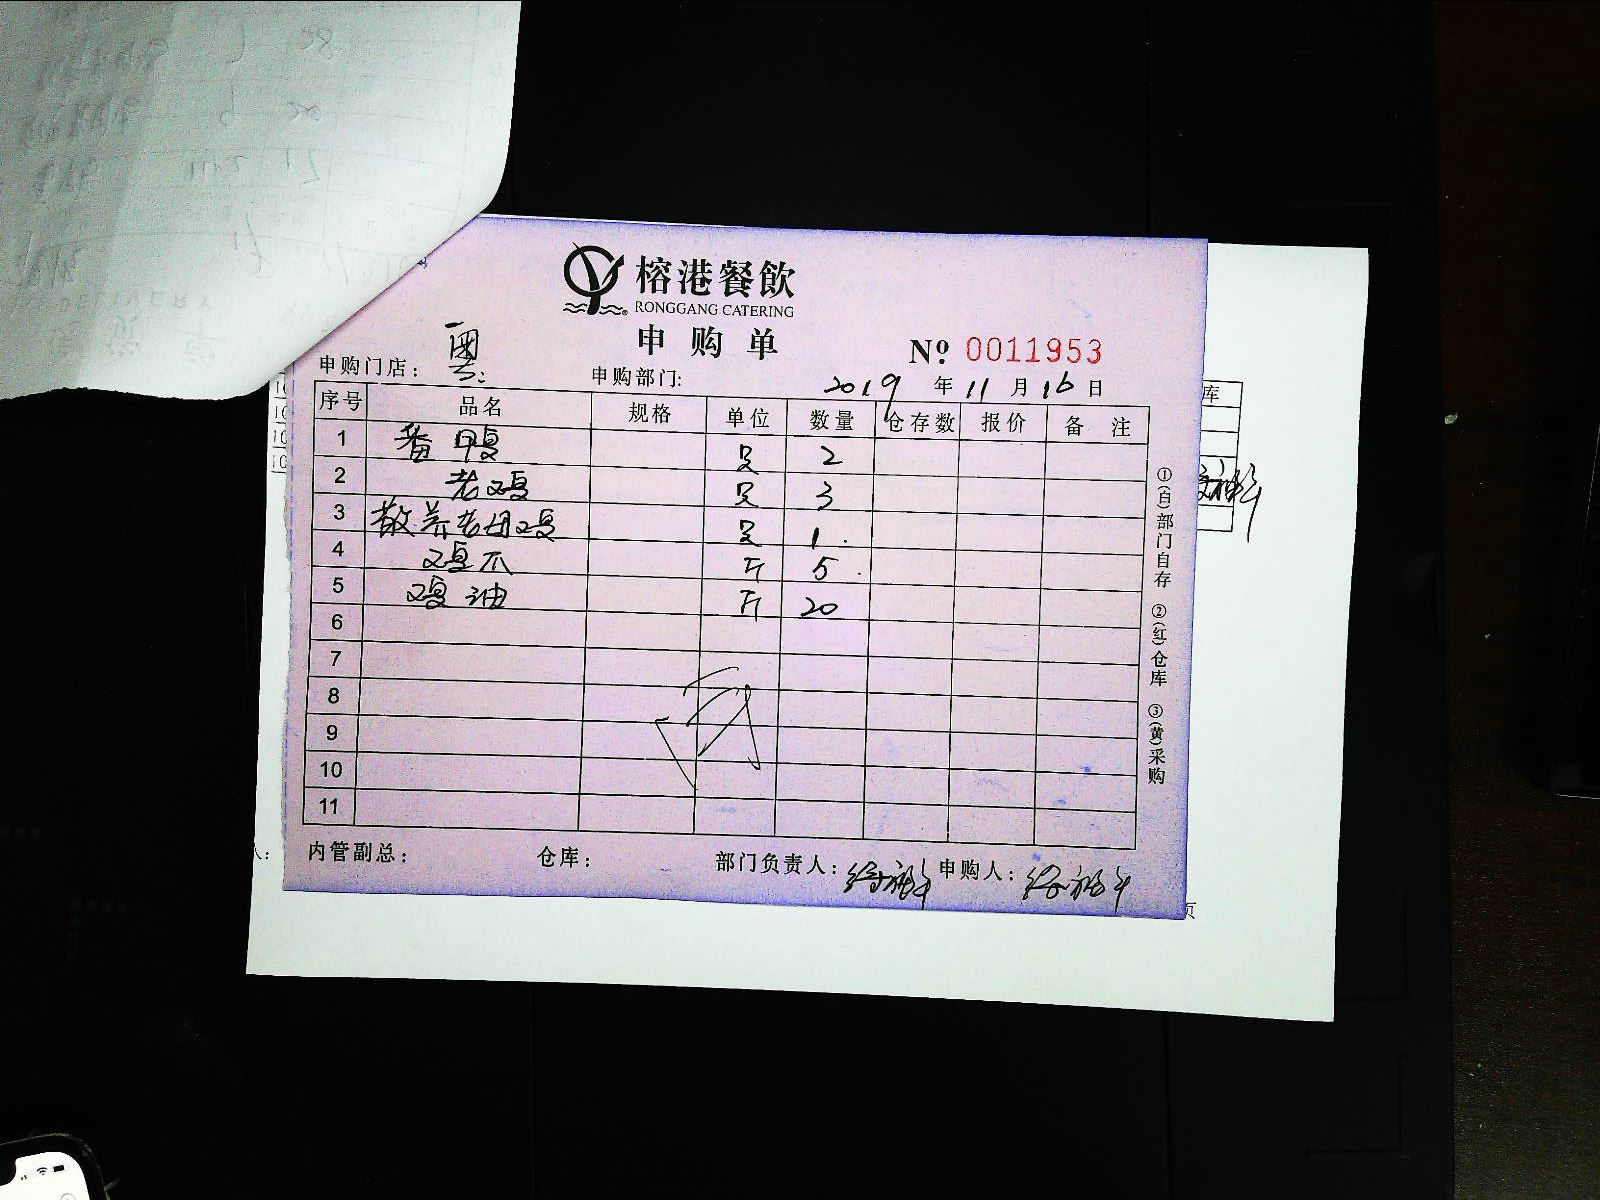 榕港餐飲
RONGGANG CATERING
申购单
№ 0011953
申购门店： 粤
申购部门: 2019 年 11 月 16 日
序号 品名 规格 单位 数量 仓存数 报价 备注
1 番鸭 只 2
2 老鸡 只 3
3 散养老母鸡 只 1
4 鸡爪 斤 5
5 鸡油 斤 20
6
7
8
9
10
11
①(白)部门自存 ②(红)仓库 ③(黄)采购
内管副总： 仓库： 部门负责人： 申购人：
库
页